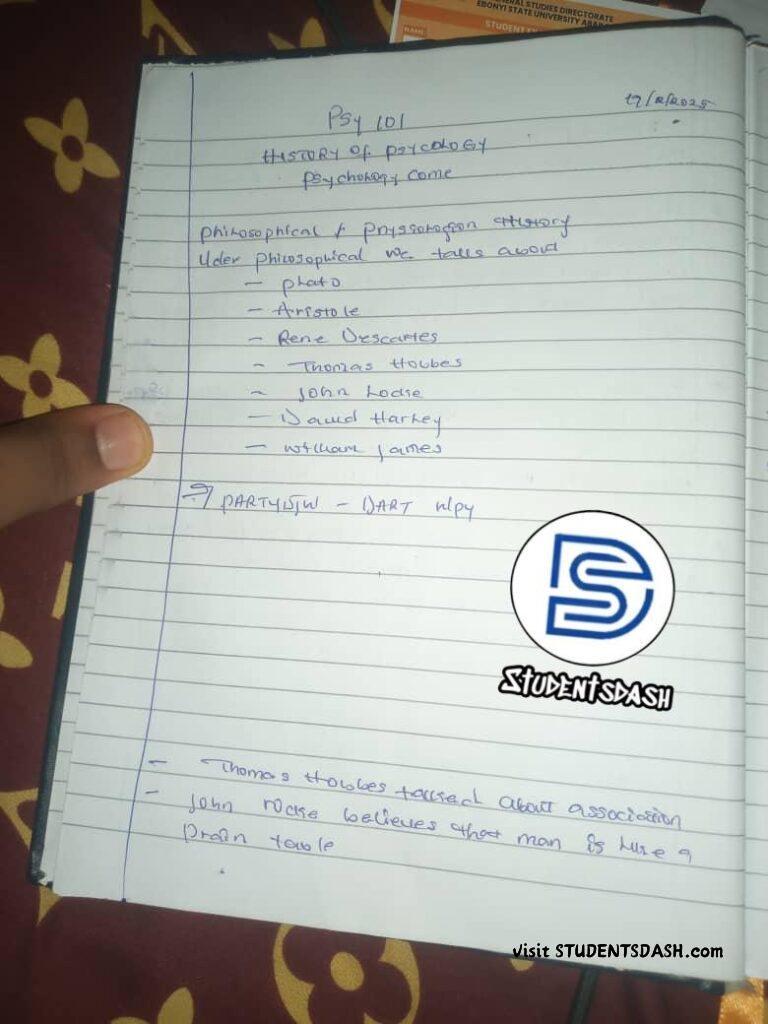 GENERAL STUDIES DIRECTORATE
EBONYI STATE UNIVERSITY
STUDENT
NAME
17/2/2025
Psy 101
HISTORY OF PSYCOLOGY
Psychology Come
Philosophical & History
Uder Philosophical we talks about
- Plato
- Aristole
- Rene Descartes
- Thomas Hobbes
- John Locke
- David Hartley
- William James
- DART
STUDENTSDASH
- Thomas Hobbes talked about association
- John rocke believes that man is like a
table
visit STUDENTSDASH.com